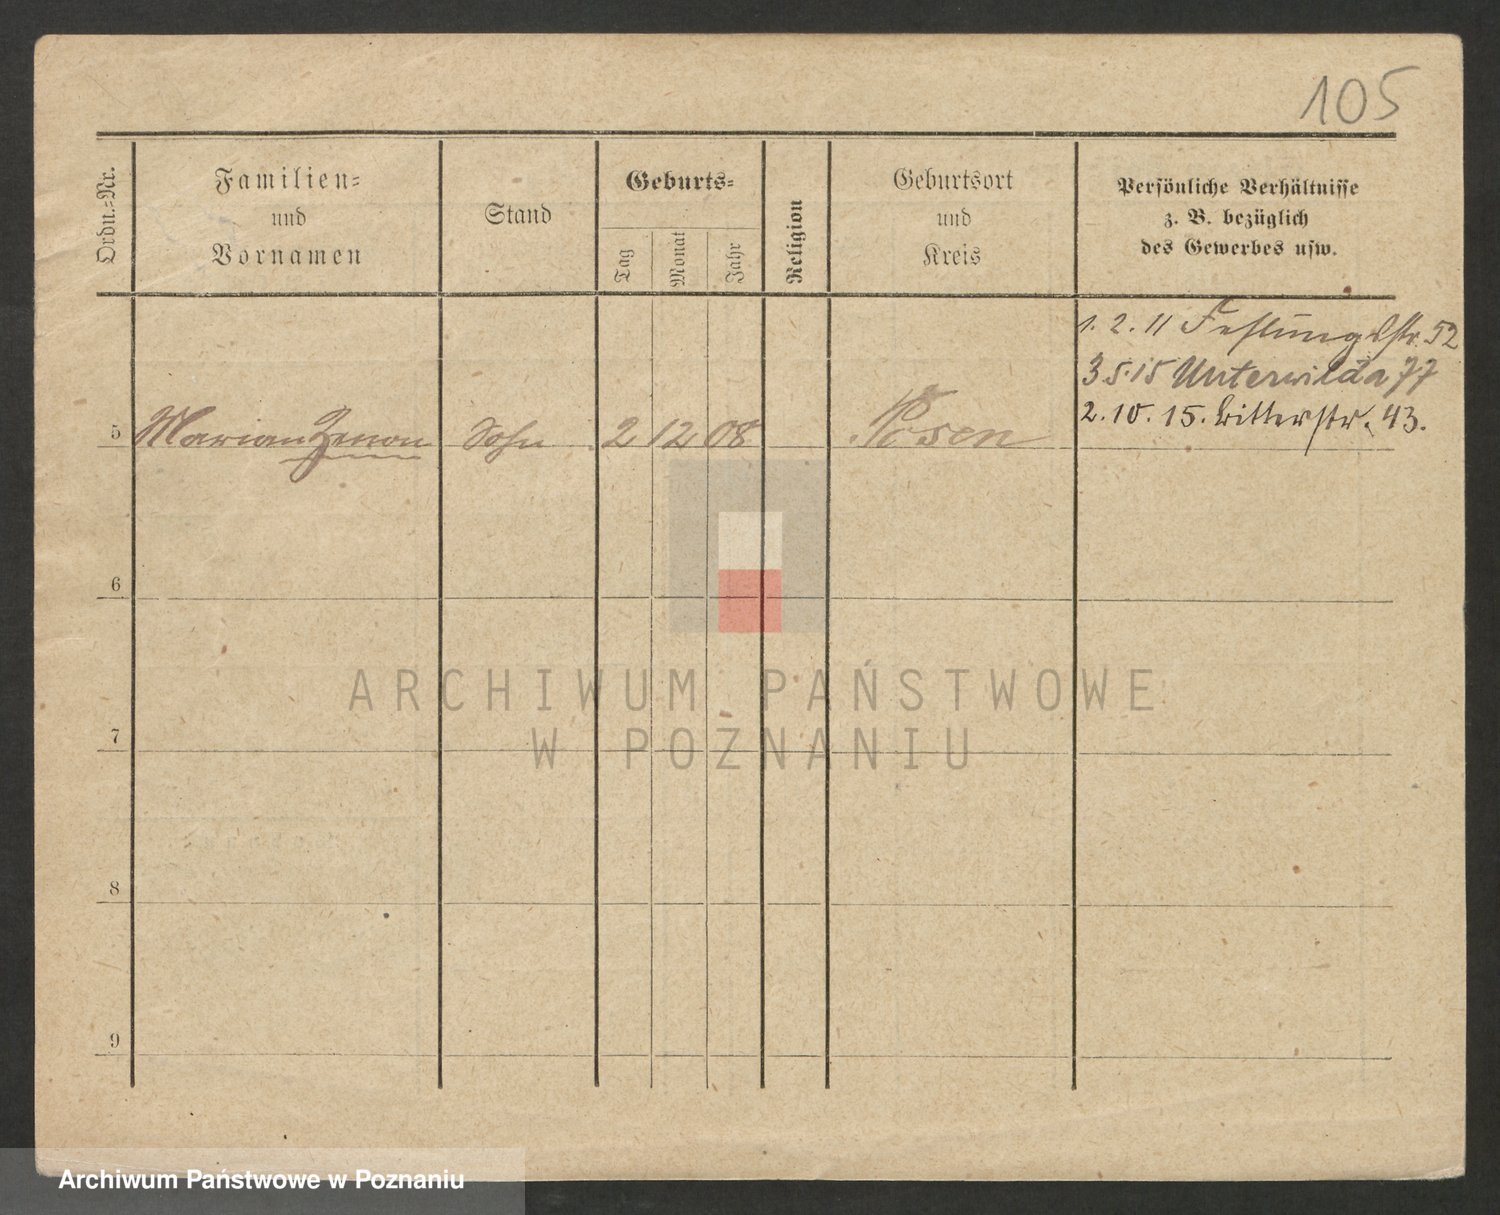 105
Ordn.-Nr.
Familien-
und
Vornamen
Stand
Geburts-
Tag
Monat
Jahr
Religion
Geburtsort
und
Kreis
Persönliche Verhältnisse
z. B. bezüglich
des Gewerbes usw.
1. 2. 11 Festungsstr. 52
3 5. 15 Unterwilda 77
2. 10. 15. Ritterstr. 43.
5 Marian Zenon Sohn 2 12 08 Posen
6
7
8
9
ARCHIWUM PAŃSTWOWE
W POZNANIU
Archiwum Państwowe w Poznaniu